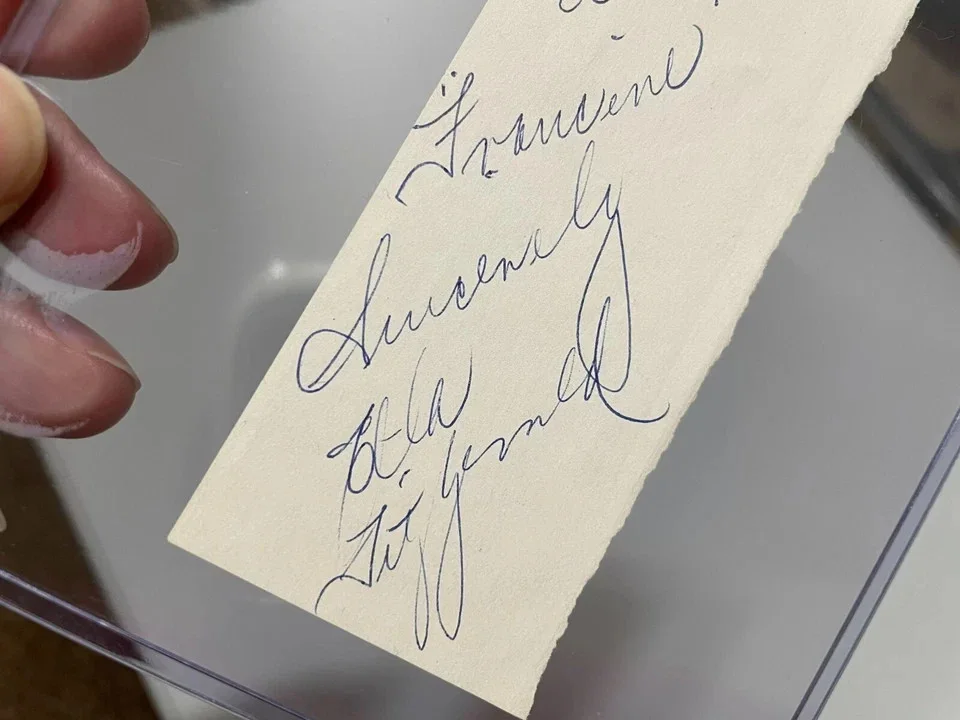 Francine
Sincerely
Ella
Fitzgerald